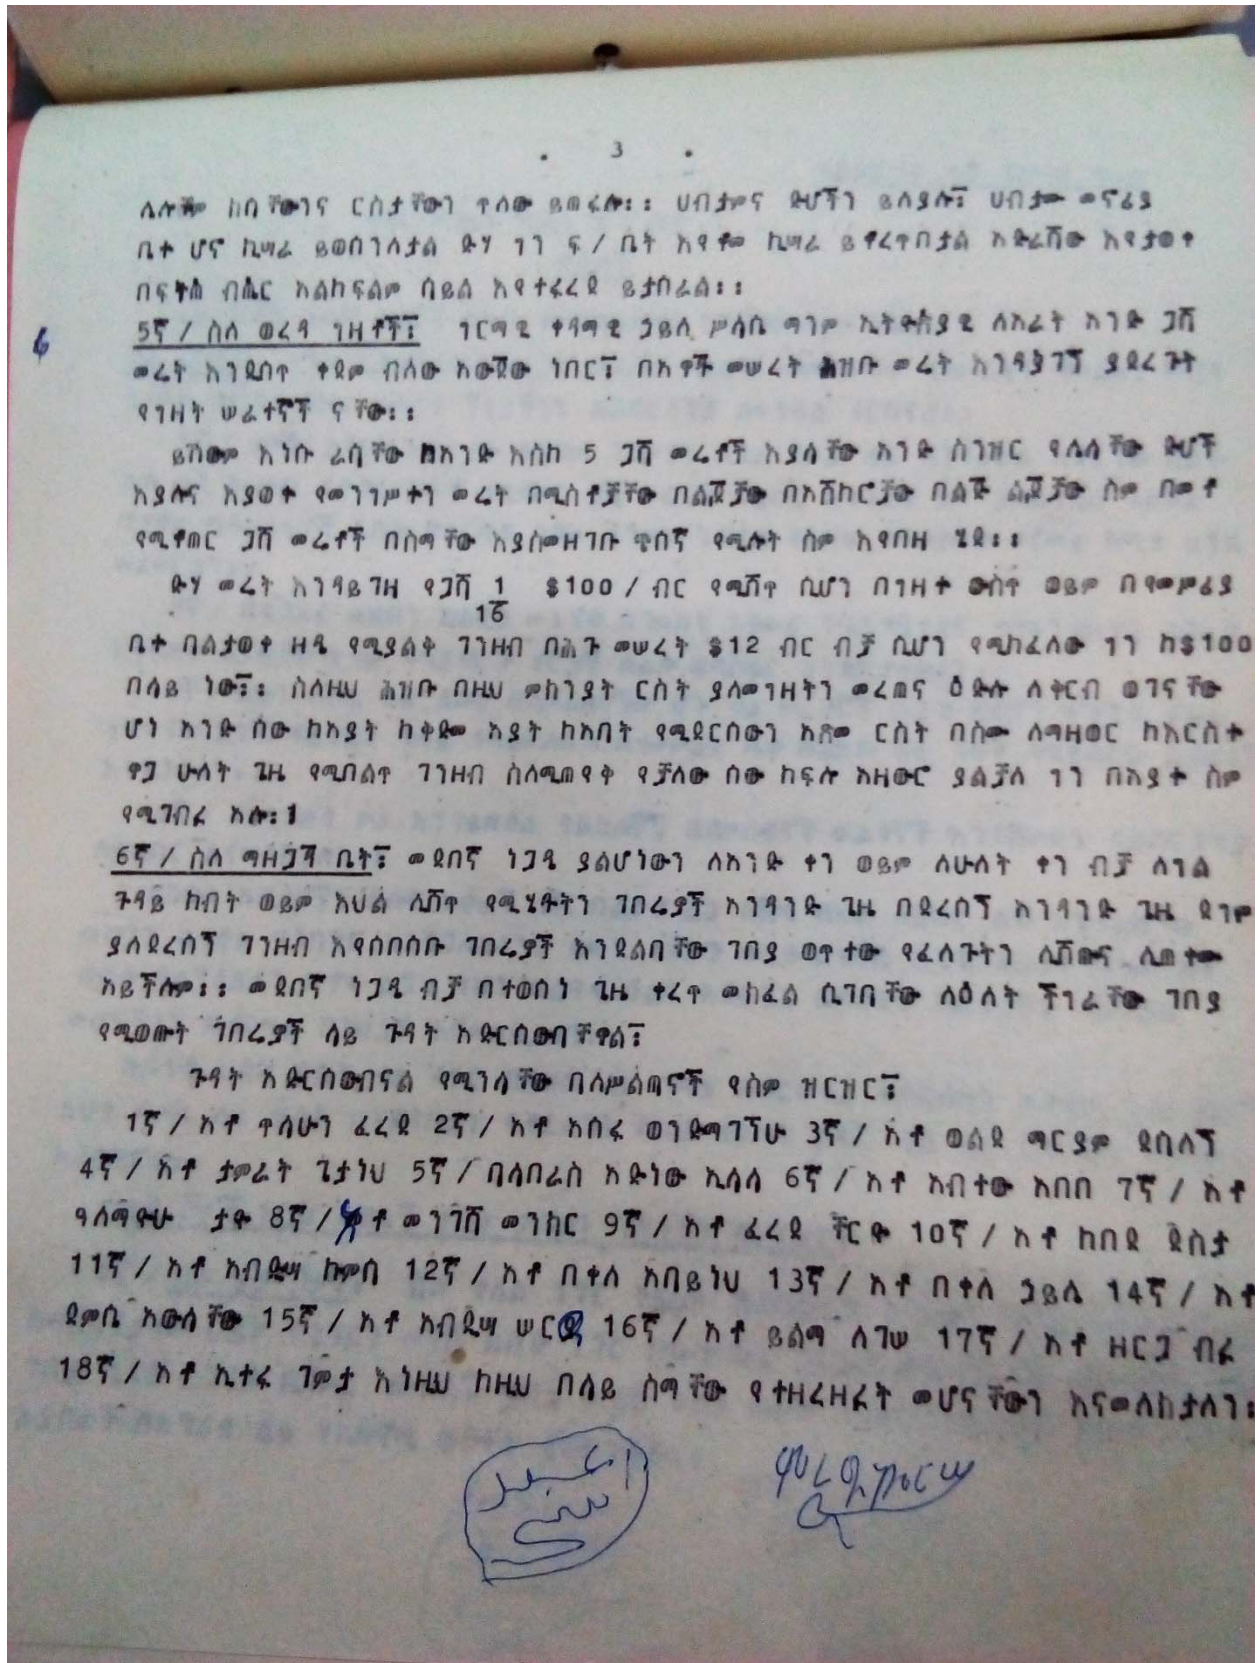 . 3 .
ሌሎችም ከብቸውንና ርስታቸውን ጥለው ይጠፈሉ፡፡ ሀብታምና ድሆችን ይለያሉ፤ ሀብታሙ መኖሪያ
ቤተ ሆኖ ኪሣራ ይወሰንለታል ድሃ ገን ፍ/ቤት እየቀመ ኪሣራ ይቆረጥበታል አድራሻው እየታወቀ
በፍትሐ ብሔር አልከፍልም ሳይል እየተፈረደ ይታሰራል፡፡
6 5ኛ/ ስለ ወረዳ ገዛቶች፤ ገርማዊ ቀዳማዊ ኃይለ ሥላሴ ማንም ኢትዮጵያዊ ለአራት አንድ ጋሻ
መሬት እንዲሰጥ ቀደም ብለው አውጀው ነበር፤ በአዋጁ መሠረት ሕዝቡ መሬት እንዳያገኝ ያደረጉት
የገዛት ሠራተኞች ናቸው፡፡
ይኸውም እነሱ ራሳቸው ከአንድ እስከ 5 ጋሻ መሬቶች እያላቸው አንድ ስንዝር የሌላቸው ድሆች
እያሉና እያወቁ የመንግሥተን መሬት በሚስቶቻቸው በልጆቻው በአሽከሮቻው በልጅ ልጆቻው ስም በመቶ
የሚቆጠር ጋሻ መሬቶች በስማቸው እያስመዘገቡ ጥሰኛ የሚሉት ስም እየበዛ ሄደ፡፡
ድሃ መሬት እንዳይገዛ የጋሻ 1/16 $100/ ብር የሚሸጥ ሲሆን በገዛተ ውስጥ ወይም በየመምሪያ
ቤተ በልታወቀ ዘዴ የሚያልቅ ገንዘብ በሕጉ መሠረት $12 ብር ብቻ ሲሆን የሚከፈለው ገን ከ$100
በላይ ነው፤፡ ስለዚህ ሕዝቡ በዚህ ምክንያት ርስት ያለመግዛትን መረጠና ዕድሉ ለቅርብ ወገናቸው
ሆነ አንድ ሰው ከአያት ከቅድመ አያት ከአባት የሚደርሰውን አጽመ ርስት በስሙ ለማዘወር ከእርስቱ
ዋጋ ሁለት ጊዜ የሚበልጥ ገንዘብ ስለሚጠየቅ የቻለው ሰው ከፍሎ አዘውሮ ያልቻለ ገን በአያቱ ስም
የሚገብሩ አሉ፡1
6ኛ/ ስለ ማዘጋጃ ቤት፤ መደበኛ ነጋዴ ያልሆነውን ለአንድ ቀን ወይም ለሁለት ቀን ብቻ ለገል
ጉዳይ ከብት ወይም እህል ሊሸጥ የሚሄዱትን ገበሬያች አንዳንድ ጊዜ በደረሰኝ አንዳንድ ጊዜ ደግም
ያለደረሰኝ ገንዘብ እየሰበሰቡ ገበሬያች እንደልባቸው ገበያ ወጥተው የፈለጉትን ሊሸጡና ሊጠቀሙ
አይችሉም፡፡ መደበኛ ነጋዴ ብቻ በተወሰነ ጊዜ ቀረጥ መከፈል ሲገባቸው ለዕለት ችገራቸው ገበያ
የሚወጡት ገበሬያች ላይ ጉዳት አድርሰውባቸዋል፤
ጉዳት አድርሰውብናል የሚንላቸው በለሥልጣኖች የስም ዝርዝር፤
1ኛ/ አቶ ጥላሁን ፈረደ 2ኛ/ አቶ አሰፋ ወንድማገኘሁ 3ኛ/ አቶ ወልደ ማርያም ደስለኝ
4ኛ/ አቶ ታምራት ጌታነህ 5ኛ/ በላበራስ አድነው ኢላላ 6ኛ/ አቶ አብተው አበበ 7ኛ/ አቶ
ዓለማየሁ ታዬ 8ኛ/ አቶ መንገሻ መንከር 9ኛ/ አቶ ፈረደ ቸርዬ 10ኛ/ አቶ ከበደ ደስታ
11ኛ/ አቶ አብዲሣ ኩምሳ 12ኛ/ አቶ በቀለ አባይነህ 13ኛ/ አቶ በቀለ ኃይሌ 14ኛ/ አቶ
ደምሴ አውላቸው 15ኛ/ አቶ አብዲሣ ሠርዳ 16ኛ/ አቶ ይልማ ለገሠ 17ኛ/ አቶ ዘርጋ ብሩ
18ኛ/ አቶ ኢተፋ ገምታ እነዚህ ከዚህ በላይ ስማቸው የተዘረዘሩት መሆናቸውን እናመለክታለን፡